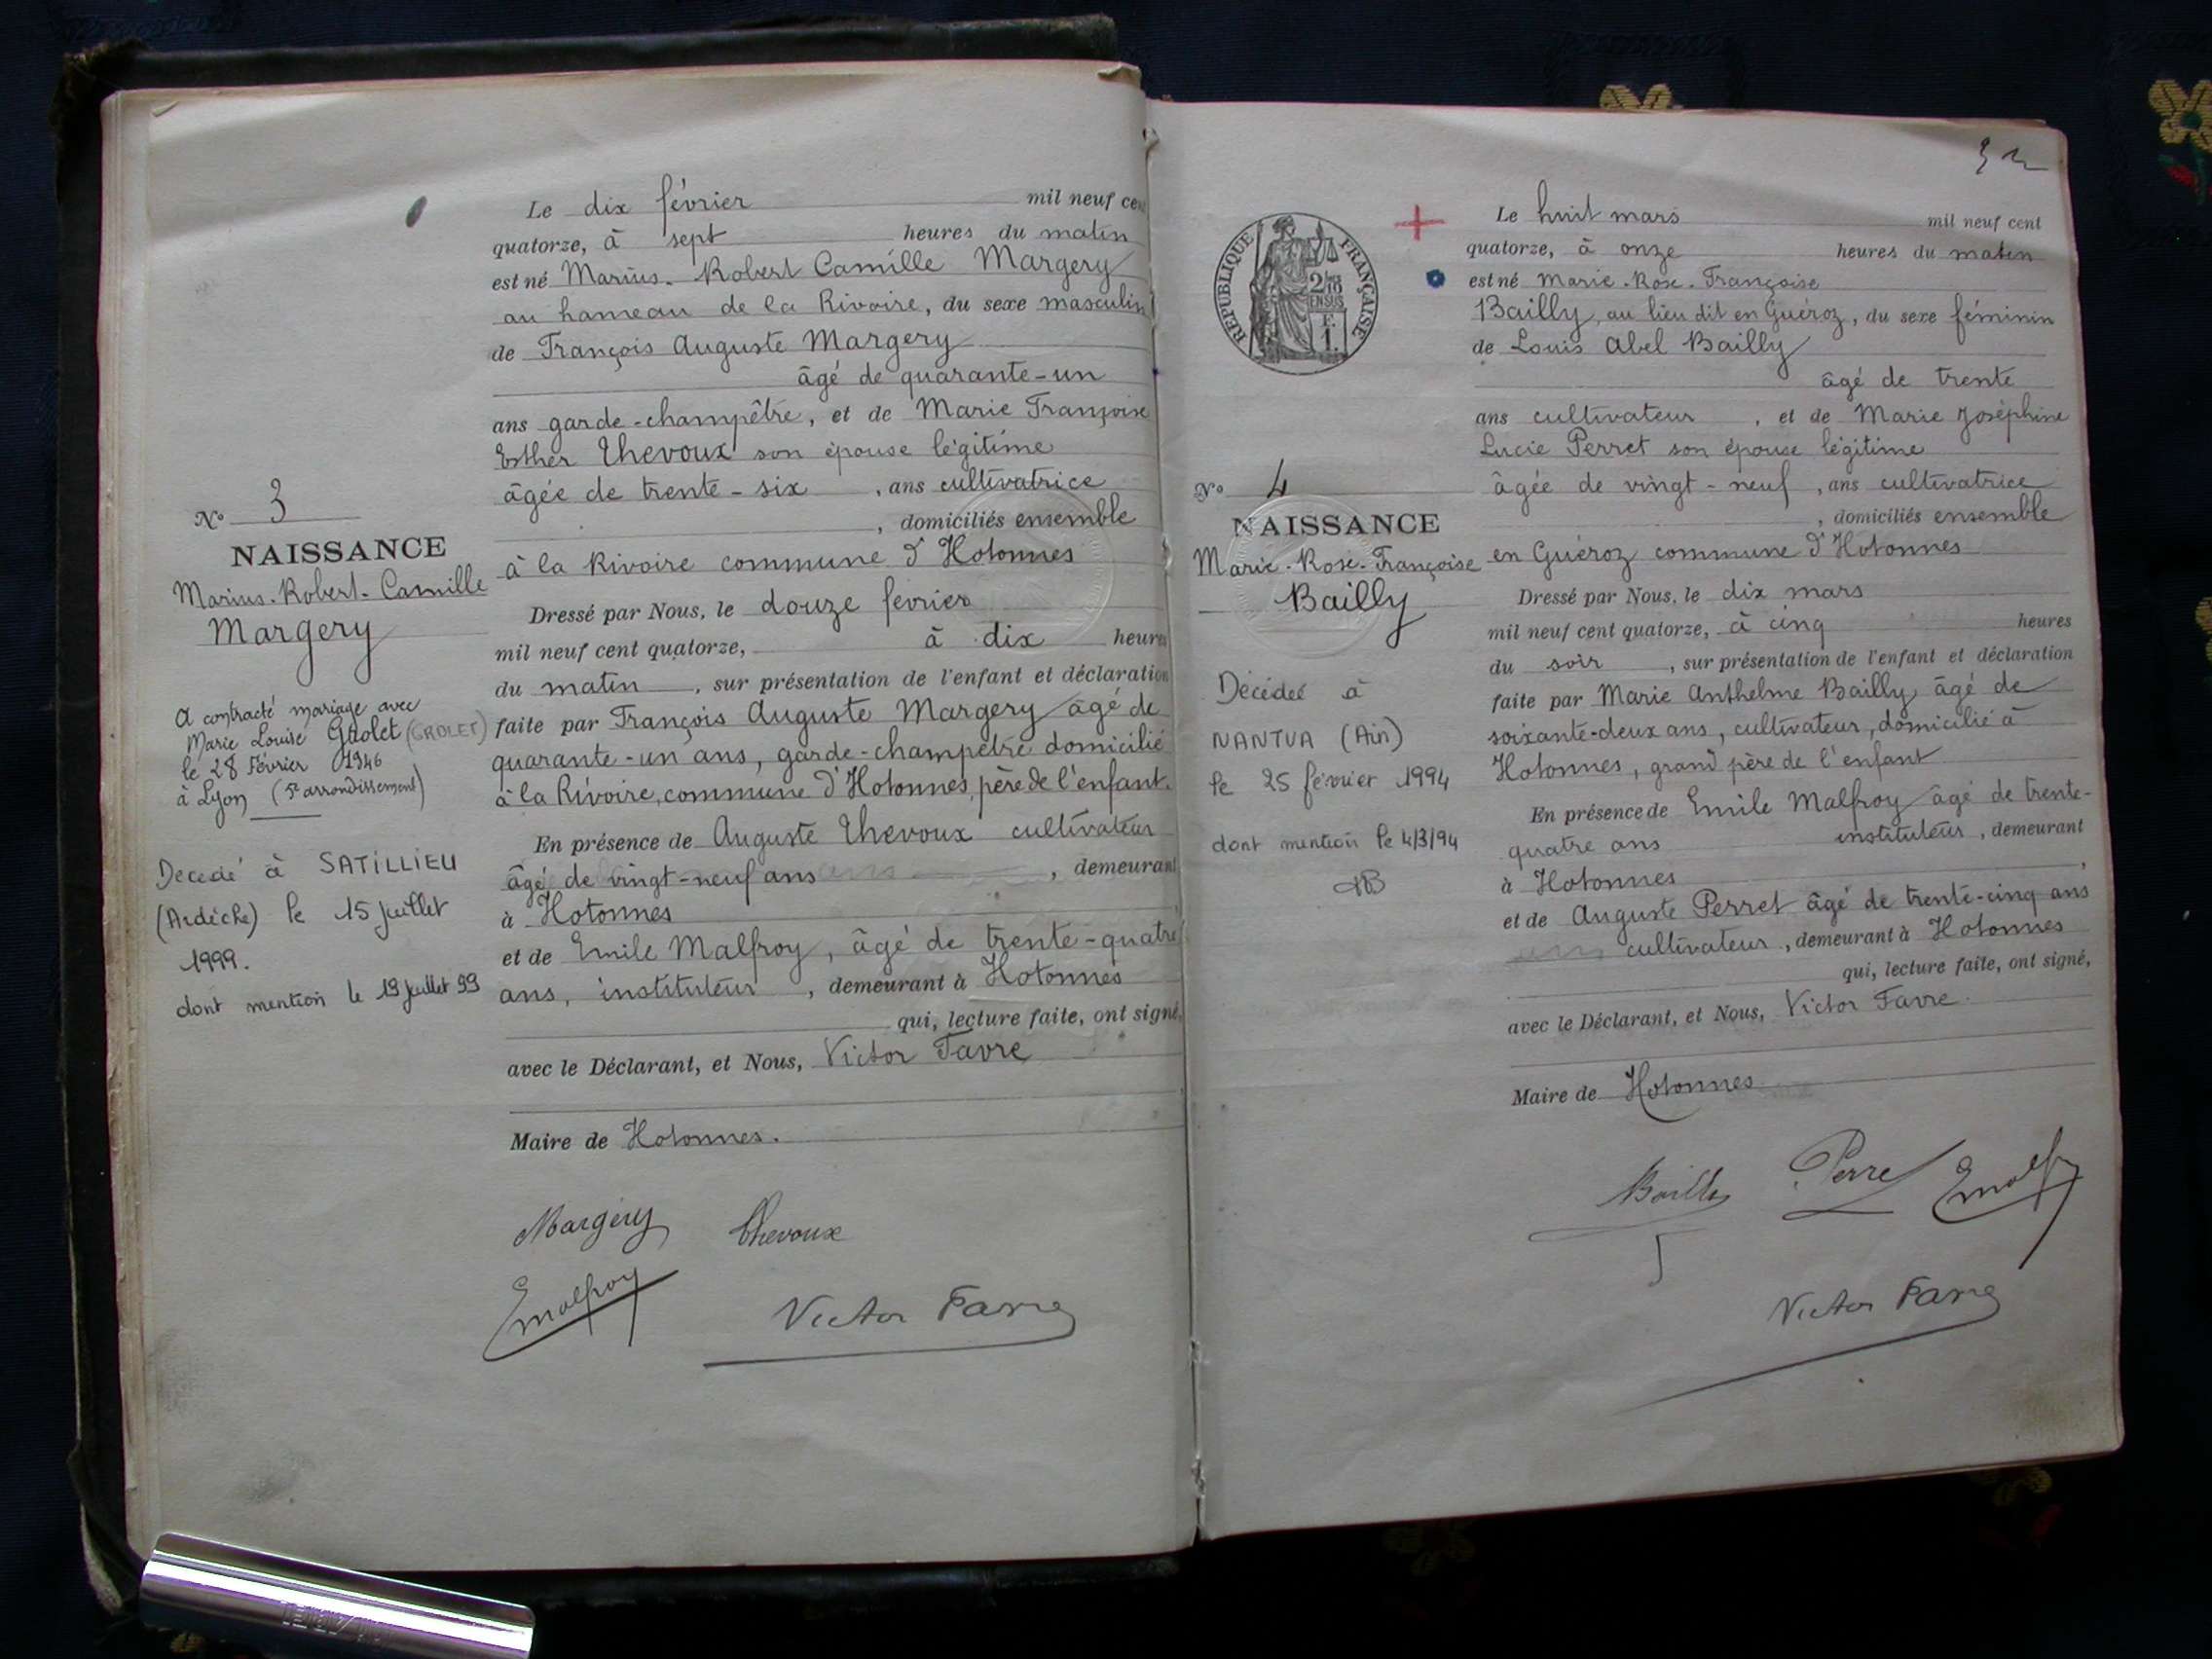 Le dix février mil neuf cent
quatorze, à sept heures du matin
est né Marius-Robert Camille Margery
au hameau de la Rivoire, du sexe masculin
de François Auguste Margery
âgé de quarante-un
ans garde-champêtre, et de Marie Françoise
Esther Thevoux son épouse légitime
âgée de trente-six, ans cultivatrice
, domiciliés ensemble
à la Rivoire commune d'Hotonnes
Dressé par Nous, le douze février
mil neuf cent quatorze, à dix heures
du matin, sur présentation de l'enfant et déclaration
faite par François Auguste Margery âgé de
quarante-un ans, garde-champêtre domicilié
à la Rivoire, commune d'Hotonnes, père de l'enfant.
En présence de Auguste Thevoux cultivateur
âgé de vingt-neuf ans, demeurant
à Hotonnes
et de Emile Malfroy, âgé de trente-quatre
ans, instituteur, demeurant à Hotonnes
qui, lecture faite, ont signé,
avec le Déclarant, et Nous, Victor Favre
Maire de Hotonnes.
Margery Thevoux
Emalfroy
Victor Favre
N° 3
NAISSANCE
Marius-Robert-Camille
Margery
A contracté mariage avec
Marie Louise Grolet (GROLET)
le 28 Février 1946
à Lyon (5e arrondissement)
Decedé à SATILLIEU
(Ardèche) le 15 juillet
1999.
dont mention le 19 juillet 99
REPUBLIQUE FRANÇAISE
2/10
EN SUS
F.
1.
Le huit mars mil neuf cent
quatorze, à onze heures du matin
est né Marie-Rose-Françoise
Bailly, au lieu dit en Guéroz, du sexe féminin
de Louis Abel Bailly
âgé de trente
ans cultivateur, et de Marie Joséphine
Lucie Perret son épouse légitime
âgée de vingt-neuf, ans cultivatrice
, domiciliés ensemble
en Guéroz commune d'Hotonnes
Dressé par Nous, le dix mars
mil neuf cent quatorze, à cinq heures
du soir, sur présentation de l'enfant et déclaration
faite par Marie Anthelme Bailly, âgé de
soixante-deux ans, cultivateur, domicilié à
Hotonnes, grand père de l'enfant
En présence de Emile Malfroy âgé de trente-
quatre ans instituteur, demeurant
à Hotonnes,
et de Auguste Perret âgé de trente-cinq ans
cultivateur, demeurant à Hotonnes
qui, lecture faite, ont signé,
avec le Déclarant, et Nous, Victor Favre.
Maire de Hotonnes
Bailly Perret Emalfroy
Victor Favre
N° 4
NAISSANCE
Marie-Rose-Françoise
Bailly
Décédée à
NANTUA (Ain)
le 25 février 1994
dont mention le 4/3/94